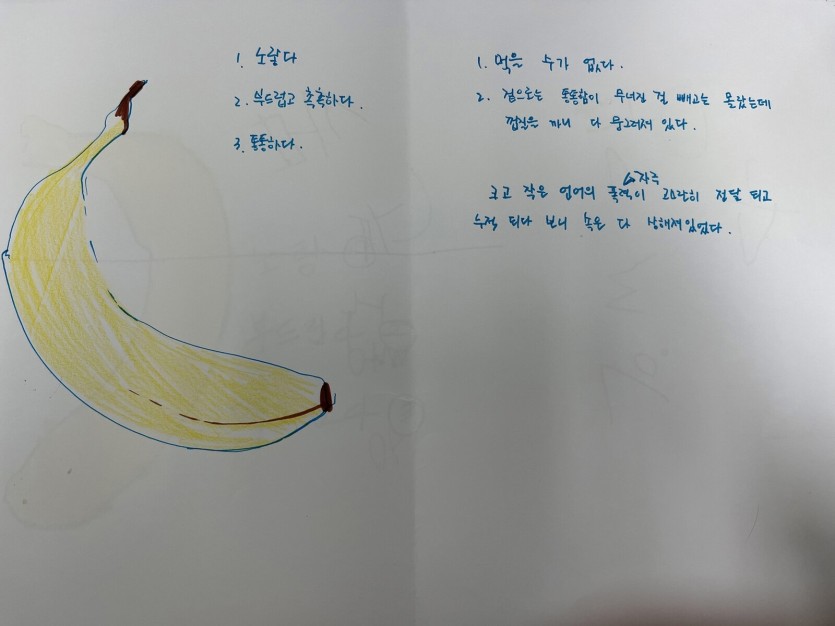 1. 노랗다
2. 부드럽고 촉촉하다.
3. 통통하다.
1. 먹을 수가 없다.
2. 겉으로는 통통함이 무너진 걸 빼고는 몰랐는데
껍질을 까니 다 뭉그러져 있다.
자주
크고 작은 언어의 폭력이 고스란히 전달 되고
누적 되다 보니 속은 다 상해져있었다.